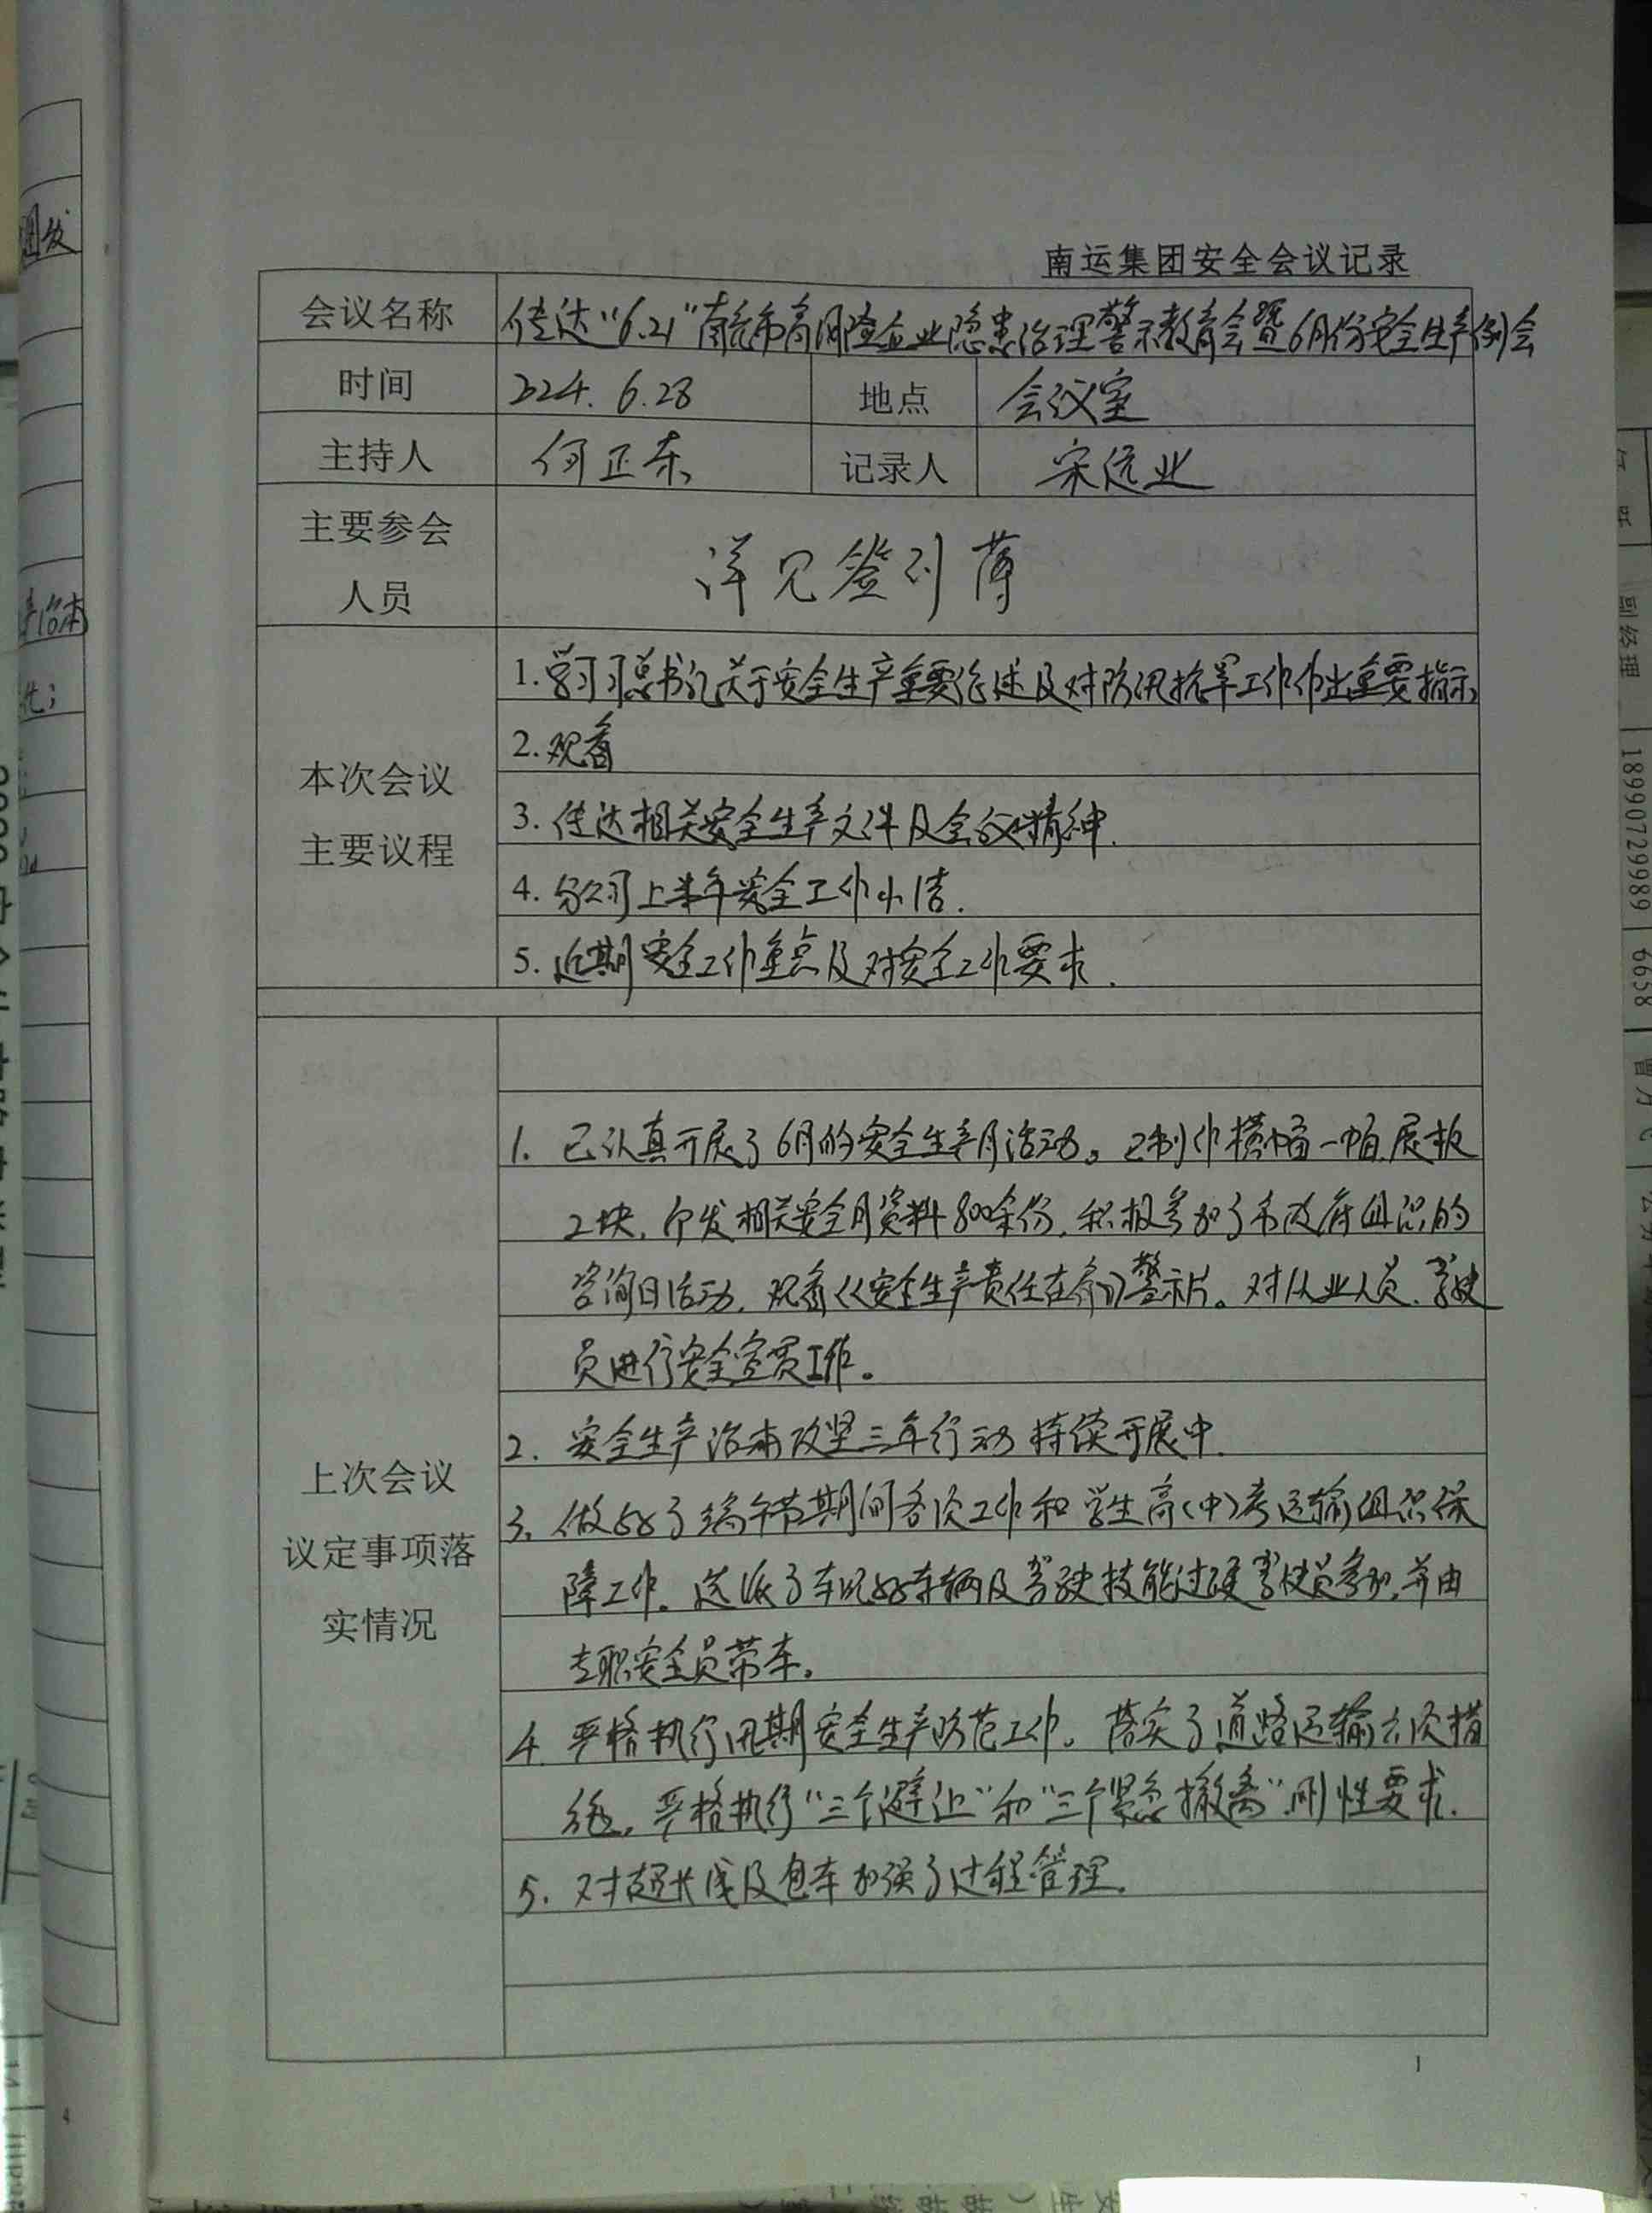 南运集团安全会议记录
会议名称 传达“6.21”南充市高风险企业隐患治理警示教育会暨6月份安全生产例会
时间 2024.6.28 地点 会议室
主持人 何正东 记录人 宋远业
主要参会
人员
详见签到薄
本次会议
主要议程
1.学习习总书记关于安全生产重要论述及对防汛抗旱工作作出重要指示
2.观看
3.传达相关安全生产文件及会议精神.
4.分公司上半年安全工作小结.
5.近期安全工作重点及对安全工作要求.
上次会议
议定事项落
实情况
1. 已认真开展了6月的安全生产月活动。已制作横幅一幅.展板
2块,印发相关安全月资料800余份,积极参加了市政府组织的
咨询日活动,观看《安全生产责任在肩》警示片。对从业人员、驾驶
员进行安全宣贯工作。
2. 安全生产治本攻坚三年行动持续开展中.
3. 做好了端午节期间各项工作和学生高(中)考运输组织保
障工作。选派了车况好车辆及驾驶技能过硬驾驶员参加,并由
专职安全员带车。
4. 严格执行汛期安全生产防范工作。落实了道路运输六项措
施,严格执行“三个避让”和“三个紧急撤离”刚性要求.
5. 对超长线及包车加强了过程管理.
1
副经理
18990729989
6658
4